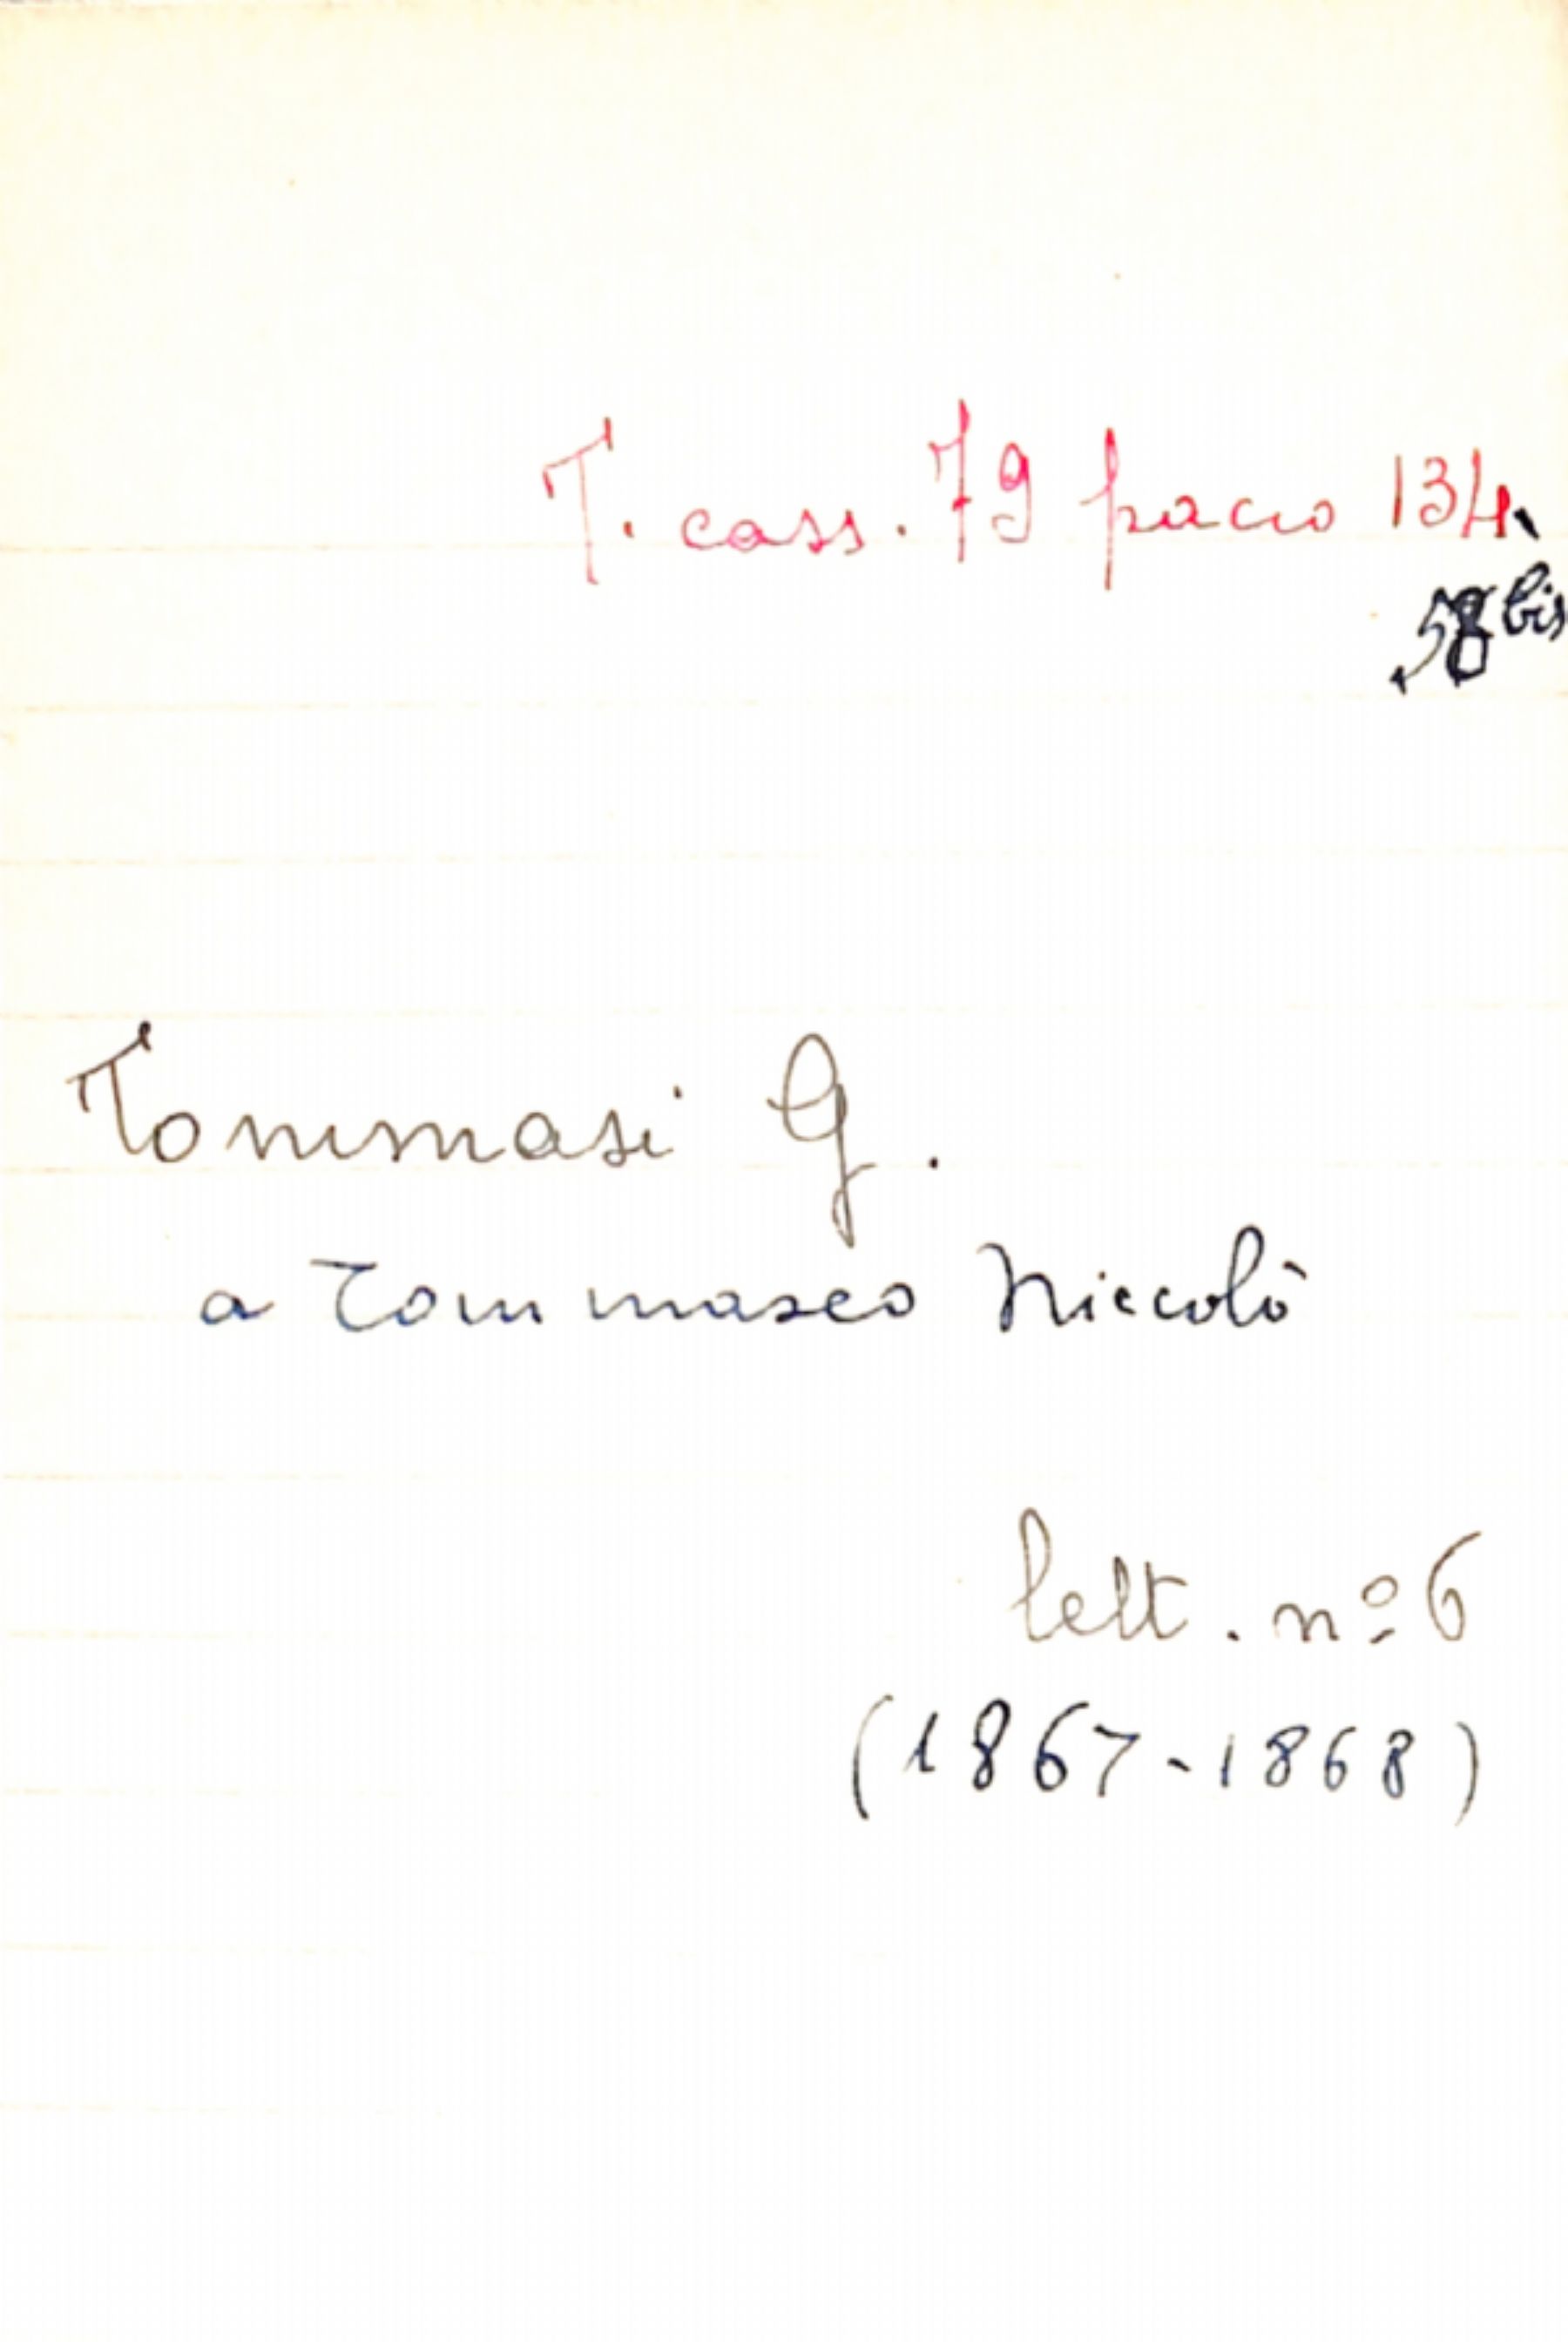 T. cass. 79 pacco 134,
58 bis
Tommasi G.
a Tommaseo Niccolò
lett. nº 6
(1867-1868)